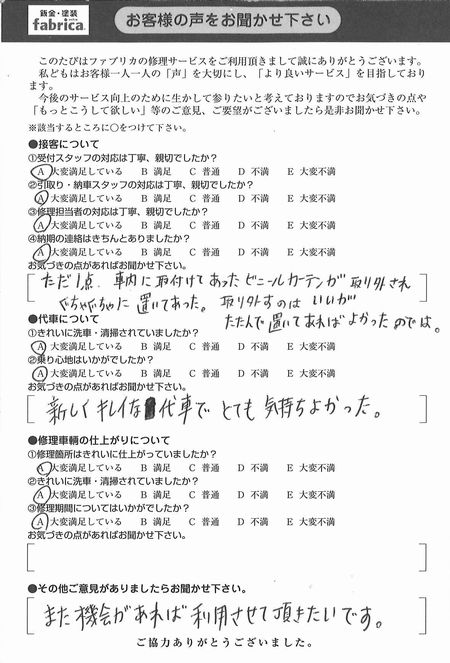 鈑金・塗装
fabrica.
お客様の声をお聞かせ下さい
このたびはファブリカの修理サービスをご利用頂きまして誠にありがとうございます。
私どもはお客様一人一人の「声」を大切にし、「より良いサービス」を目指しており
ます。
今後のサービス向上のために生かして参りたいと考えておりますのでお気づきの点や
「もっとこうして欲しい」等のご意見、ご要望がございましたら是非お聞かせ下さい。
※該当するところに○をつけて下さい。
●接客について
①受付スタッフの対応は丁寧、親切でしたか？
A 大変満足している B 満足 C 普通 D 不満 E 大変不満
②引取り・納車スタッフの対応は丁寧、親切でしたか？
A 大変満足している B 満足 C 普通 D 不満 E 大変不満
③修理担当者の対応は丁寧、親切でしたか？
A 大変満足している B 満足 C 普通 D 不満 E 大変不満
④納期の連絡はきちんとありましたか？
A 大変満足している B 満足 C 普通 D 不満 E 大変不満
お気づきの点があればお聞かせ下さい。
ただ1点、車内に取付けてあったビニールカーテンが取り外され
ぐちゃぐちゃに置いてあった。取り外すのはいいが
たたんで置いてあればよかったのでは。
●代車について
①きれいに洗車・清掃されていましたか？
A 大変満足している B 満足 C 普通 D 不満 E 大変不満
②乗り心地はいかがでしたか？
A 大変満足している B 満足 C 普通 D 不満 E 大変不満
お気づきの点があればお聞かせ下さい。
新しくキレイな代車でとても気持ちよかった。
●修理車輌の仕上がりについて
①修理箇所はきれいに仕上がっていましたか？
A 大変満足している B 満足 C 普通 D 不満 E 大変不満
②きれいに洗車・清掃されていましたか？
A 大変満足している B 満足 C 普通 D 不満 E 大変不満
③修理期間についてはいかがでしたか？
A 大変満足している B 満足 C 普通 D 不満 E 大変不満
お気づきの点があればお聞かせ下さい。
●その他ご意見がありましたらお聞かせ下さい。
また機会があれば利用させて頂きたいです。
ご協力ありがとうございました。